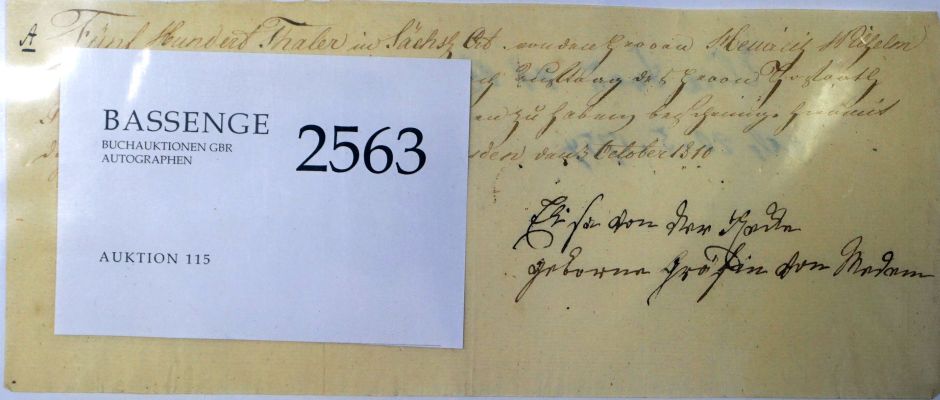 A
Fünf Hundert Thaler in Sächsl. Crt. von den Herren Heinrich Wilhelm
Auftrag des Herrn
zu haben, bescheinige hiermit
den 3 October 1810
BASSENGE
BUCHAUKTIONEN GBR
AUTOGRAPHEN
2563
AUKTION 115
Elisa von der Recke
geborne Gräfin von Medem